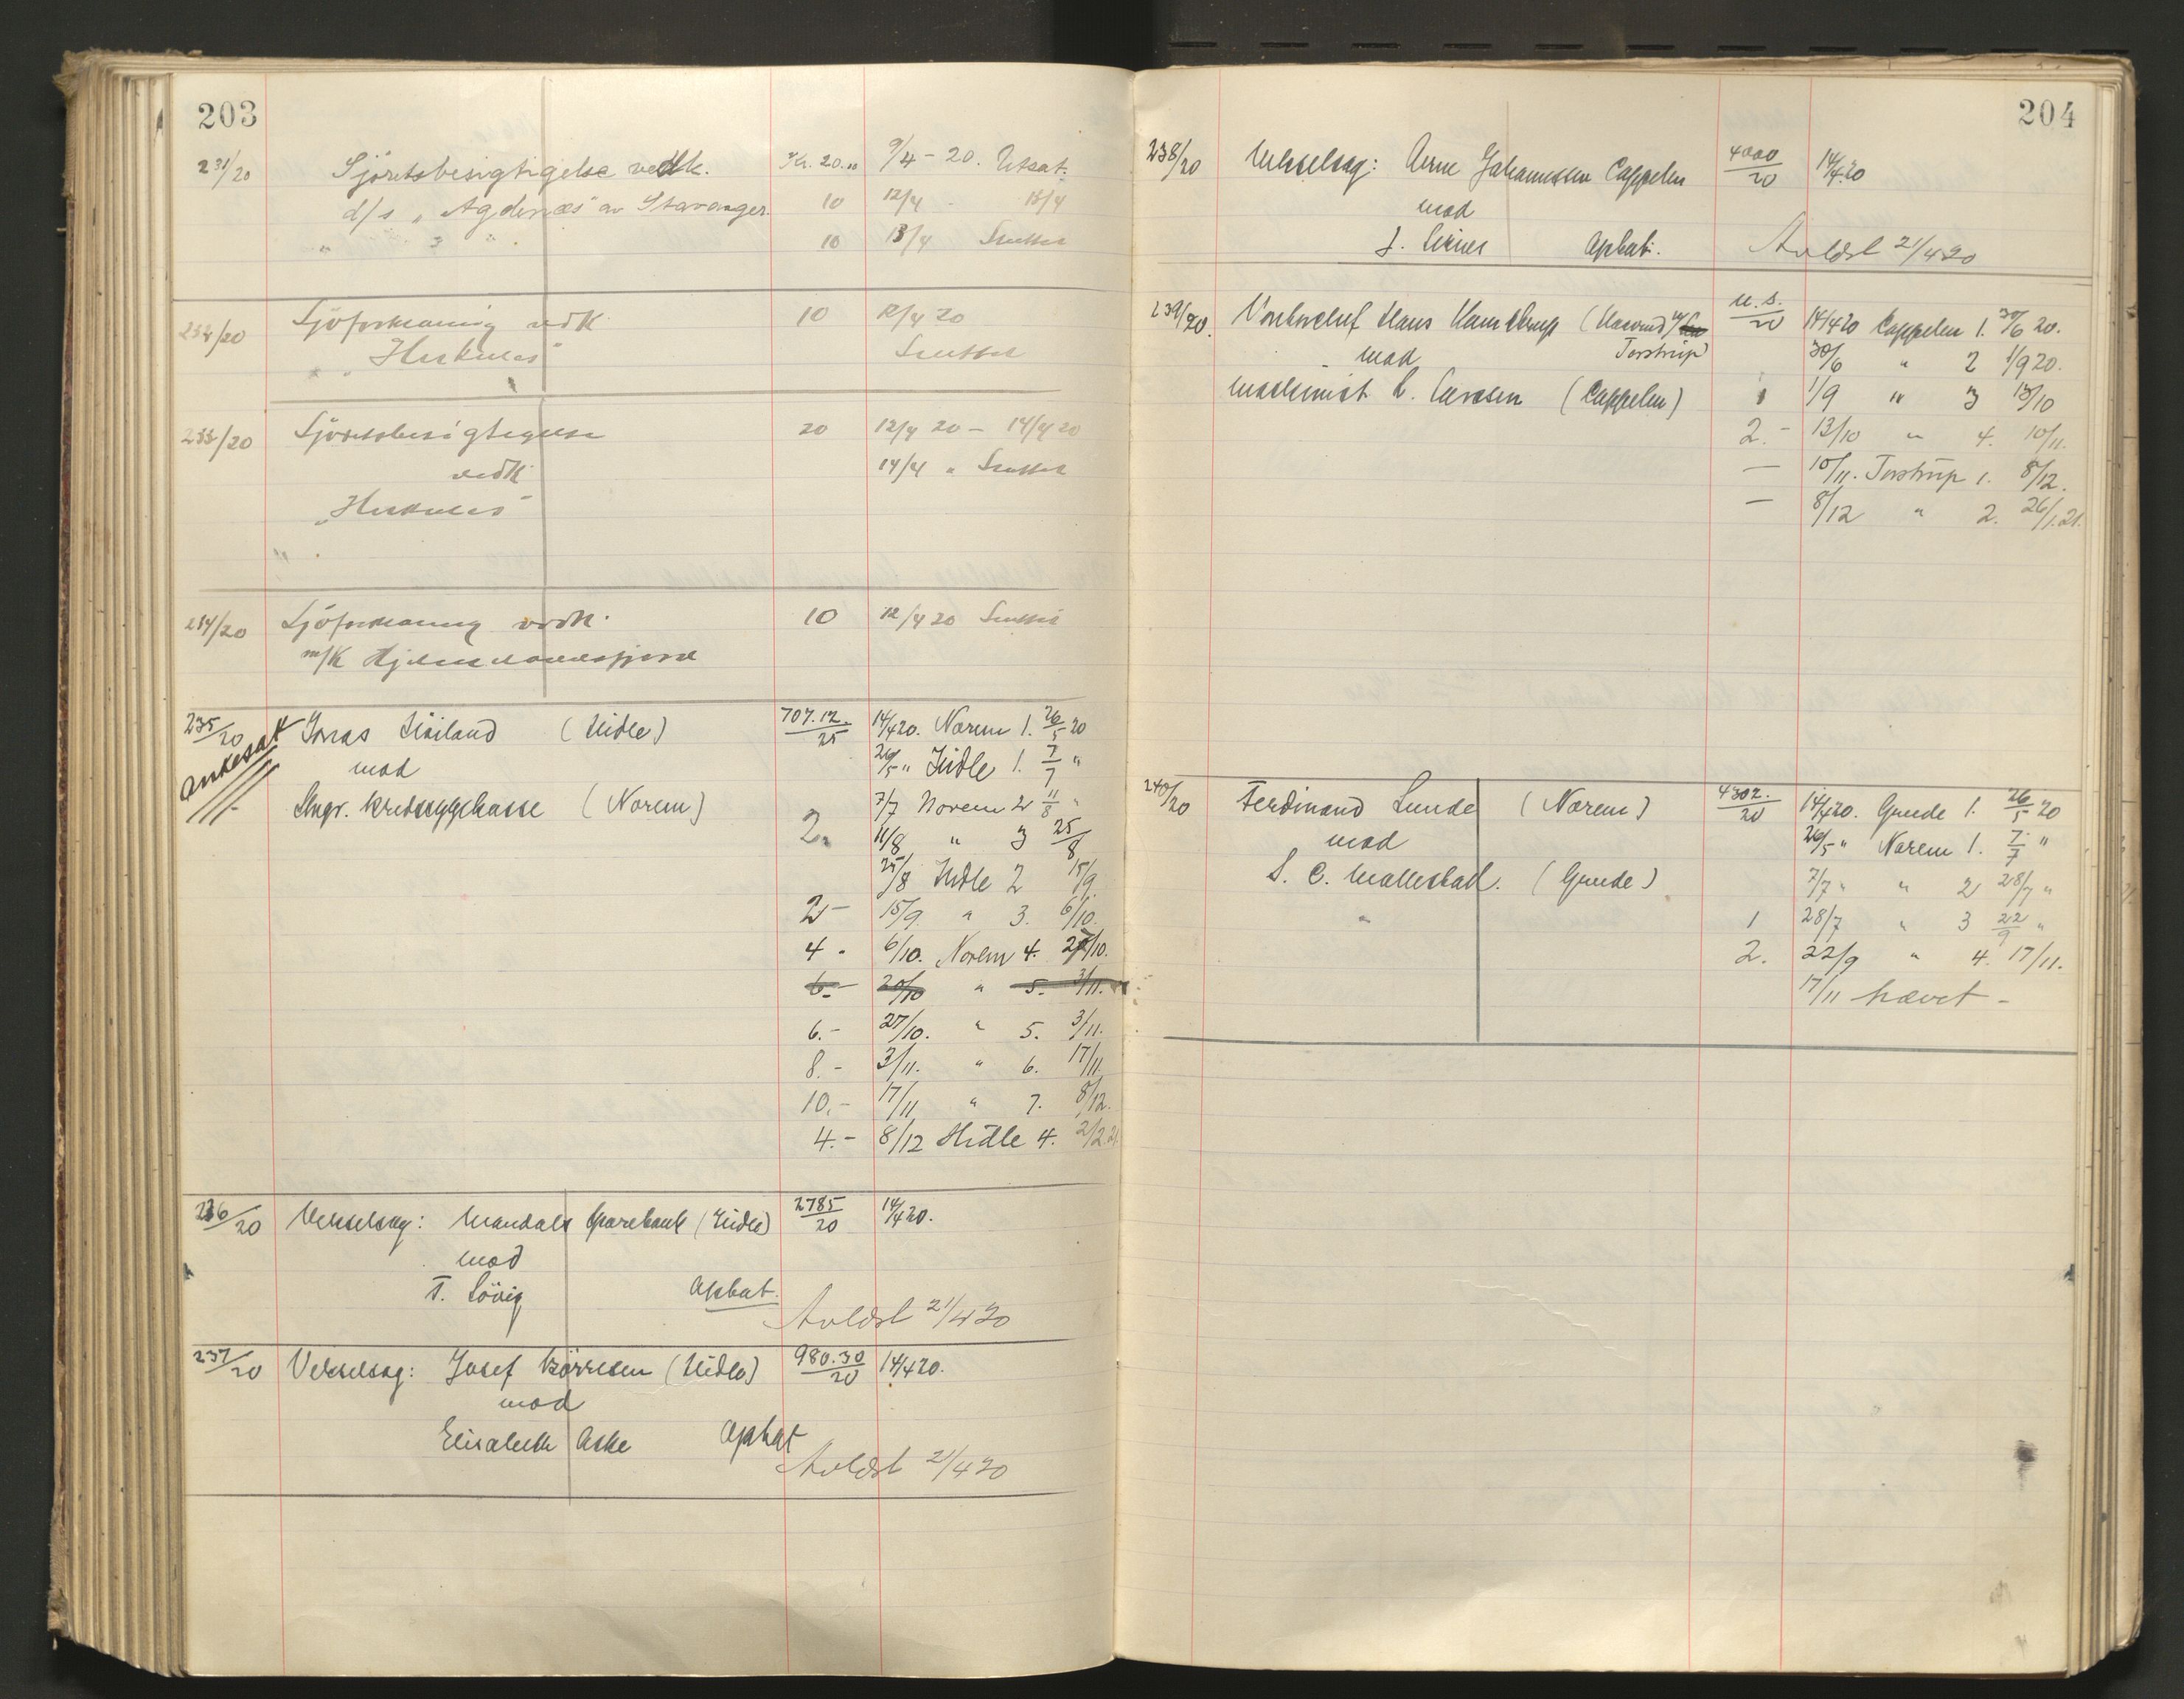 203
231/20 Sjöretsbesigtigelse vedk. Kr. 20.00 9/4 - 20. Utsat.
d/s "Agdenæs" av Stavanger. 10 12/4 - 13/4
" " 10 13/4 Sluttet
232/20 Sjöforklaring vedk 10 12/4 20
"Herkules" Sluttet
233/20 Sjöretsbesigtigelse 20 12/4 20 - 14/4 20
vedk 14/4 " Sluttet
"Herkules"
234/20 Sjöforklaring vedk. 10 12/4 20 Sluttet
m/k
235/20 Jonas (Hidle) 707.12./25 14/4 20. Norem 1. 26/5 20
ankesat
mod 26/5 " Hidle 1. 7/7 "
Stvgr. kredssygekasse (Norem) 7/7 Norem 2 11/8 "
2. 11/8 " 3 25/8
25/8 Hidle 2 15/9.
2 - 15/9 " 3. 6/10.
4 - 6/10. Norem 4. 27/10.
6.- 20/10 " 5. 3/11.
6.- 27/10. " 5. 3/11.
8.- 3/11. " 6. 17/11.
10.- 17/11 " 7. 8/12.
4.- 8/12 Hidle 4. 2/2 21.
236/20 Vekselsag: Mandals Sparebank (Hidle) 2785/20 14/4 20.
mod
T. Lövig Ophat.
Avldst 21/4 20
237/20 Vekselsag: Josef Börresen (Hidle) 980.30/20 14/4 20.
mod
Elisabeth Aske Ophat
Avldst 21/4 20
204
238/20 Vekselsag: Arne Johannessen Cappelen 4000/20 14/4 20
mod
J. Ophat. Avldst 21/4 20
239/20. Hans Kamstrup u.s./20 14/4 20 Cappelen 1. 30/6 20.
mod Torstrup) 30/6 " 2 1/9 20.
Maskinist L. Larsen (Cappelen) 1 1/9 " 3 13/10
2.- 13/10 " 4. 10/11.
— 10/11. Torstrup 1. 8/12.
— 8/12 " 2. 26/1.21.
240/20 Ferdinand Lunde (Norem) 4302./20 14/4 20. Grude 1. 26/5 20
mod 26/5 " Norem 1. 7/7 "
S. C. (Grude) 7/7 " " 2 28/7 "
" 1 28/7 " 3 22/9 "
2. 22/9 " 4. 17/11.
17/11 hævet -